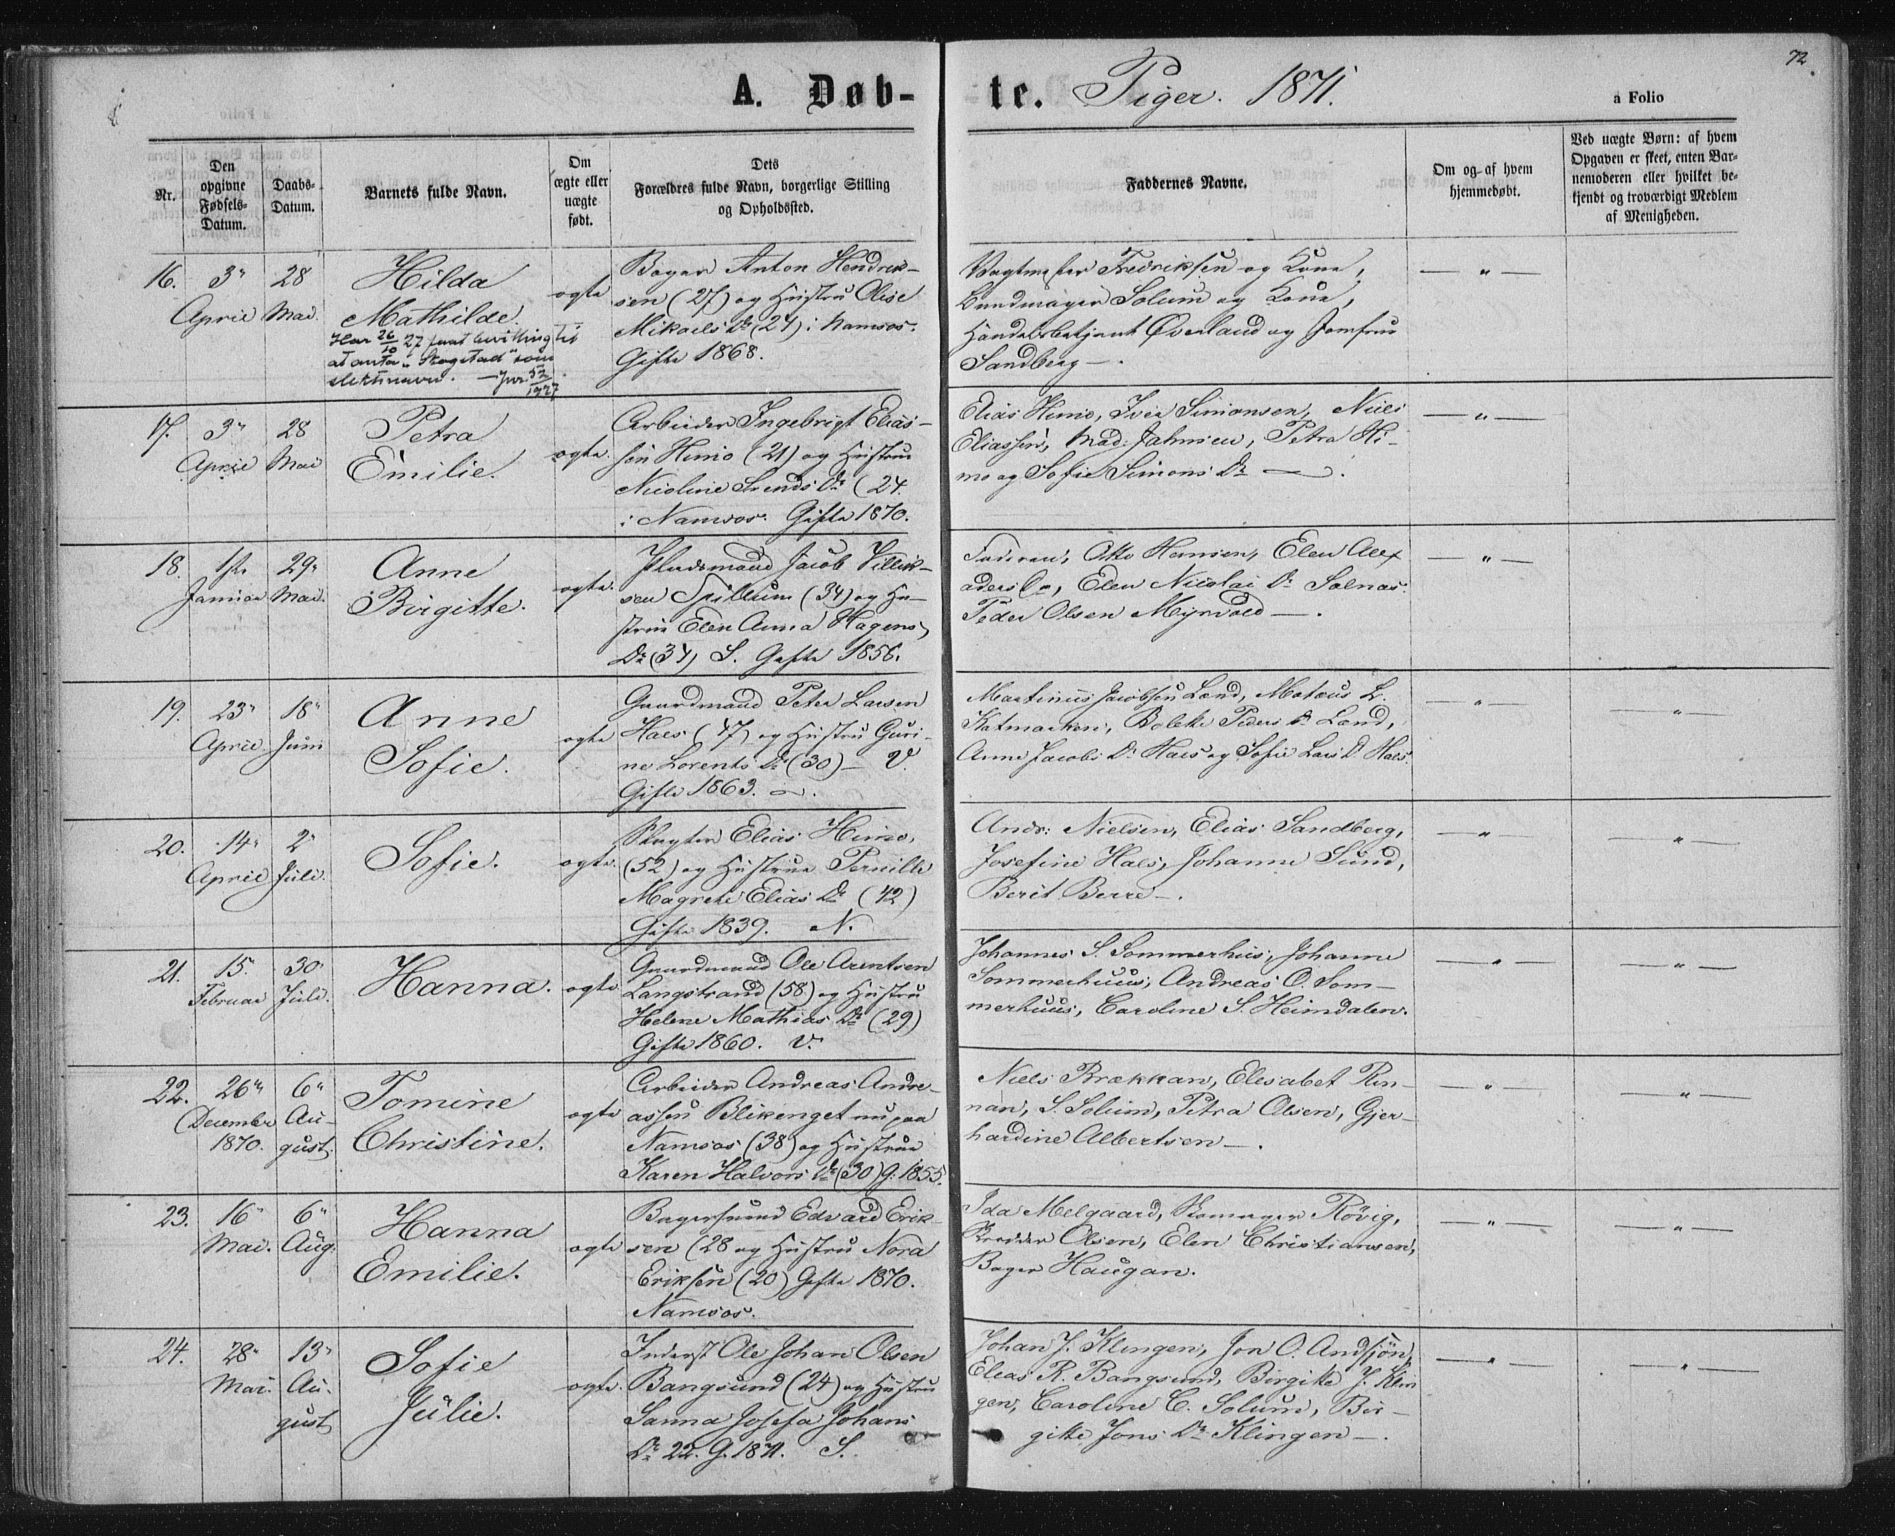 72.
A. Døb-
te. Piger. 1871.
a Folio
Nr.
Den
opgivne
Fødsels-
Datum.
Daabs-
Datum.
Barnets fulde Navn.
Om
ægte eller
uægte
født.
Dets
Forældres fulde Navn, borgerlige Stilling
og Opholdssted.
Faddernes Navne.
Om og af hvem
hjemmedøbt.
Ved uægte Børn: af hvem
Opgaven er skeet, enten Bar-
nemoderen eller hvilket be-
kjendt og troværdigt Medlem
af Menigheden.
16.
3"
April
28
Mai.
Hilda
Mathilde
Har 26/10 27 faat bevilling til
at anta "Skogstad" som
slektsnavn. - Jnr. 52/1927
ægte
Bager Anton Hendrik-
sen (27) og Hustru Olise
Mikaels Dr (24) i Namsos.
Gifte 1868.
Vagtmester Fredriksen og Kone,
Bundmager Solum og Kone,
Handelsbetjent Øverland og Jomfru
Sandberg
17.
3"
April
28
Mai
Petra
Emilie.
ægte.
Arbeider Ingebrigt Elias-
sen Himo (21) og Hustru
Nicoline Svends Dr (24.
i Namsos. Gifte 1870.
Elias Himo, Iver Simonsen, Niels
Eliassen, Mad: Jahnsen, Petra Hi-
mo og Sofie Simons Dr
18.
1ste
Januar
29"
Mai.
Anne
Birgitte.
ægte.
Pladsmand Jacob Villik-
sen Spillum (34) og Hu-
stru Elen Anna Hagens
Dr (34) S. Gifte 1856.
Faderen, Otto Hansen, Elen Alex
aders Dr, Elen Nicolai Dr Solnas.
Peder Olsen Myrvold
19.
23"
April
18"
Juni
Anne
Sofie.
ægte
Gaardmand Peter Larsen
Haes (47) og Hustru Guri-
ne Lorents Dr (30) - V.
Gifte 1863.
Martinus Jacobsen Lænd, Mateus L.
Katmarken, Bolette Peders Dr Lænd,
Anne Jacobs Dr Haes og Sofie Lars D Haes.
20.
14"
April
2"
Juli.
Sofie.
ægte.
Skygter Elias Himo,
(52) og Hustrue Pernille
Magrete Elias Dr (42)
Gifte 1839. N.
Andr: Nielsen, Elias Sandberg,
Josefine Haes, Johanne Sund,
Berit Berre
21.
15.
Februar
30
Juli.
Hanna.
ægte
Gaardmand Ole Arentsen
Langstrand (58) og Hustru
Helene Mathias Dr (29)
Gifte 1860. V.
Johannes S. Sommerhus, Johanne
Sommerhuus, Andreas O. Som-
merhuus, Caroline S. Heimdalen.
22.
26"
December
1870.
6"
Au-
gust.
Tomine
Christine.
ægte
Arbeider Andreas Andre-
assen Blikenget nu paa
Namsos (38) og Hustrue
Karen Halvors Dr (30) G. 1855.
Niels Brækkan, Elesabet Ron-
nan, S. Solum, Petra Olsen, Gjer-
hardine Albertsen
23.
16"
Mai.
6"
Aug.
Hanna
Emilie.
ægte
Bagersvend Edvard Erik-
sen (28 og Hustru Nora
Eriksen (20) Gifte 1870.
Namsos.
Ida Melgaard, Skomager Rövig,
Brødder Olsen, Elen Christiansen,
Bager Haugan.
24.
28"
Mai.
13"
Au-
gust
Sofie
Julie.
ægte.
Inderst Ole Johan Olsen
Bangsund (24) og Hustru
Sanna Josefa Johans
Dr 22. G. 1871. S.
Johan J. Klingen, Jon O. Andsjön,
Elias R. Bangsund, Birgitte J. Klin
gen, Caroline C. Solum, Bir-
gitte Jons Dr Klingen